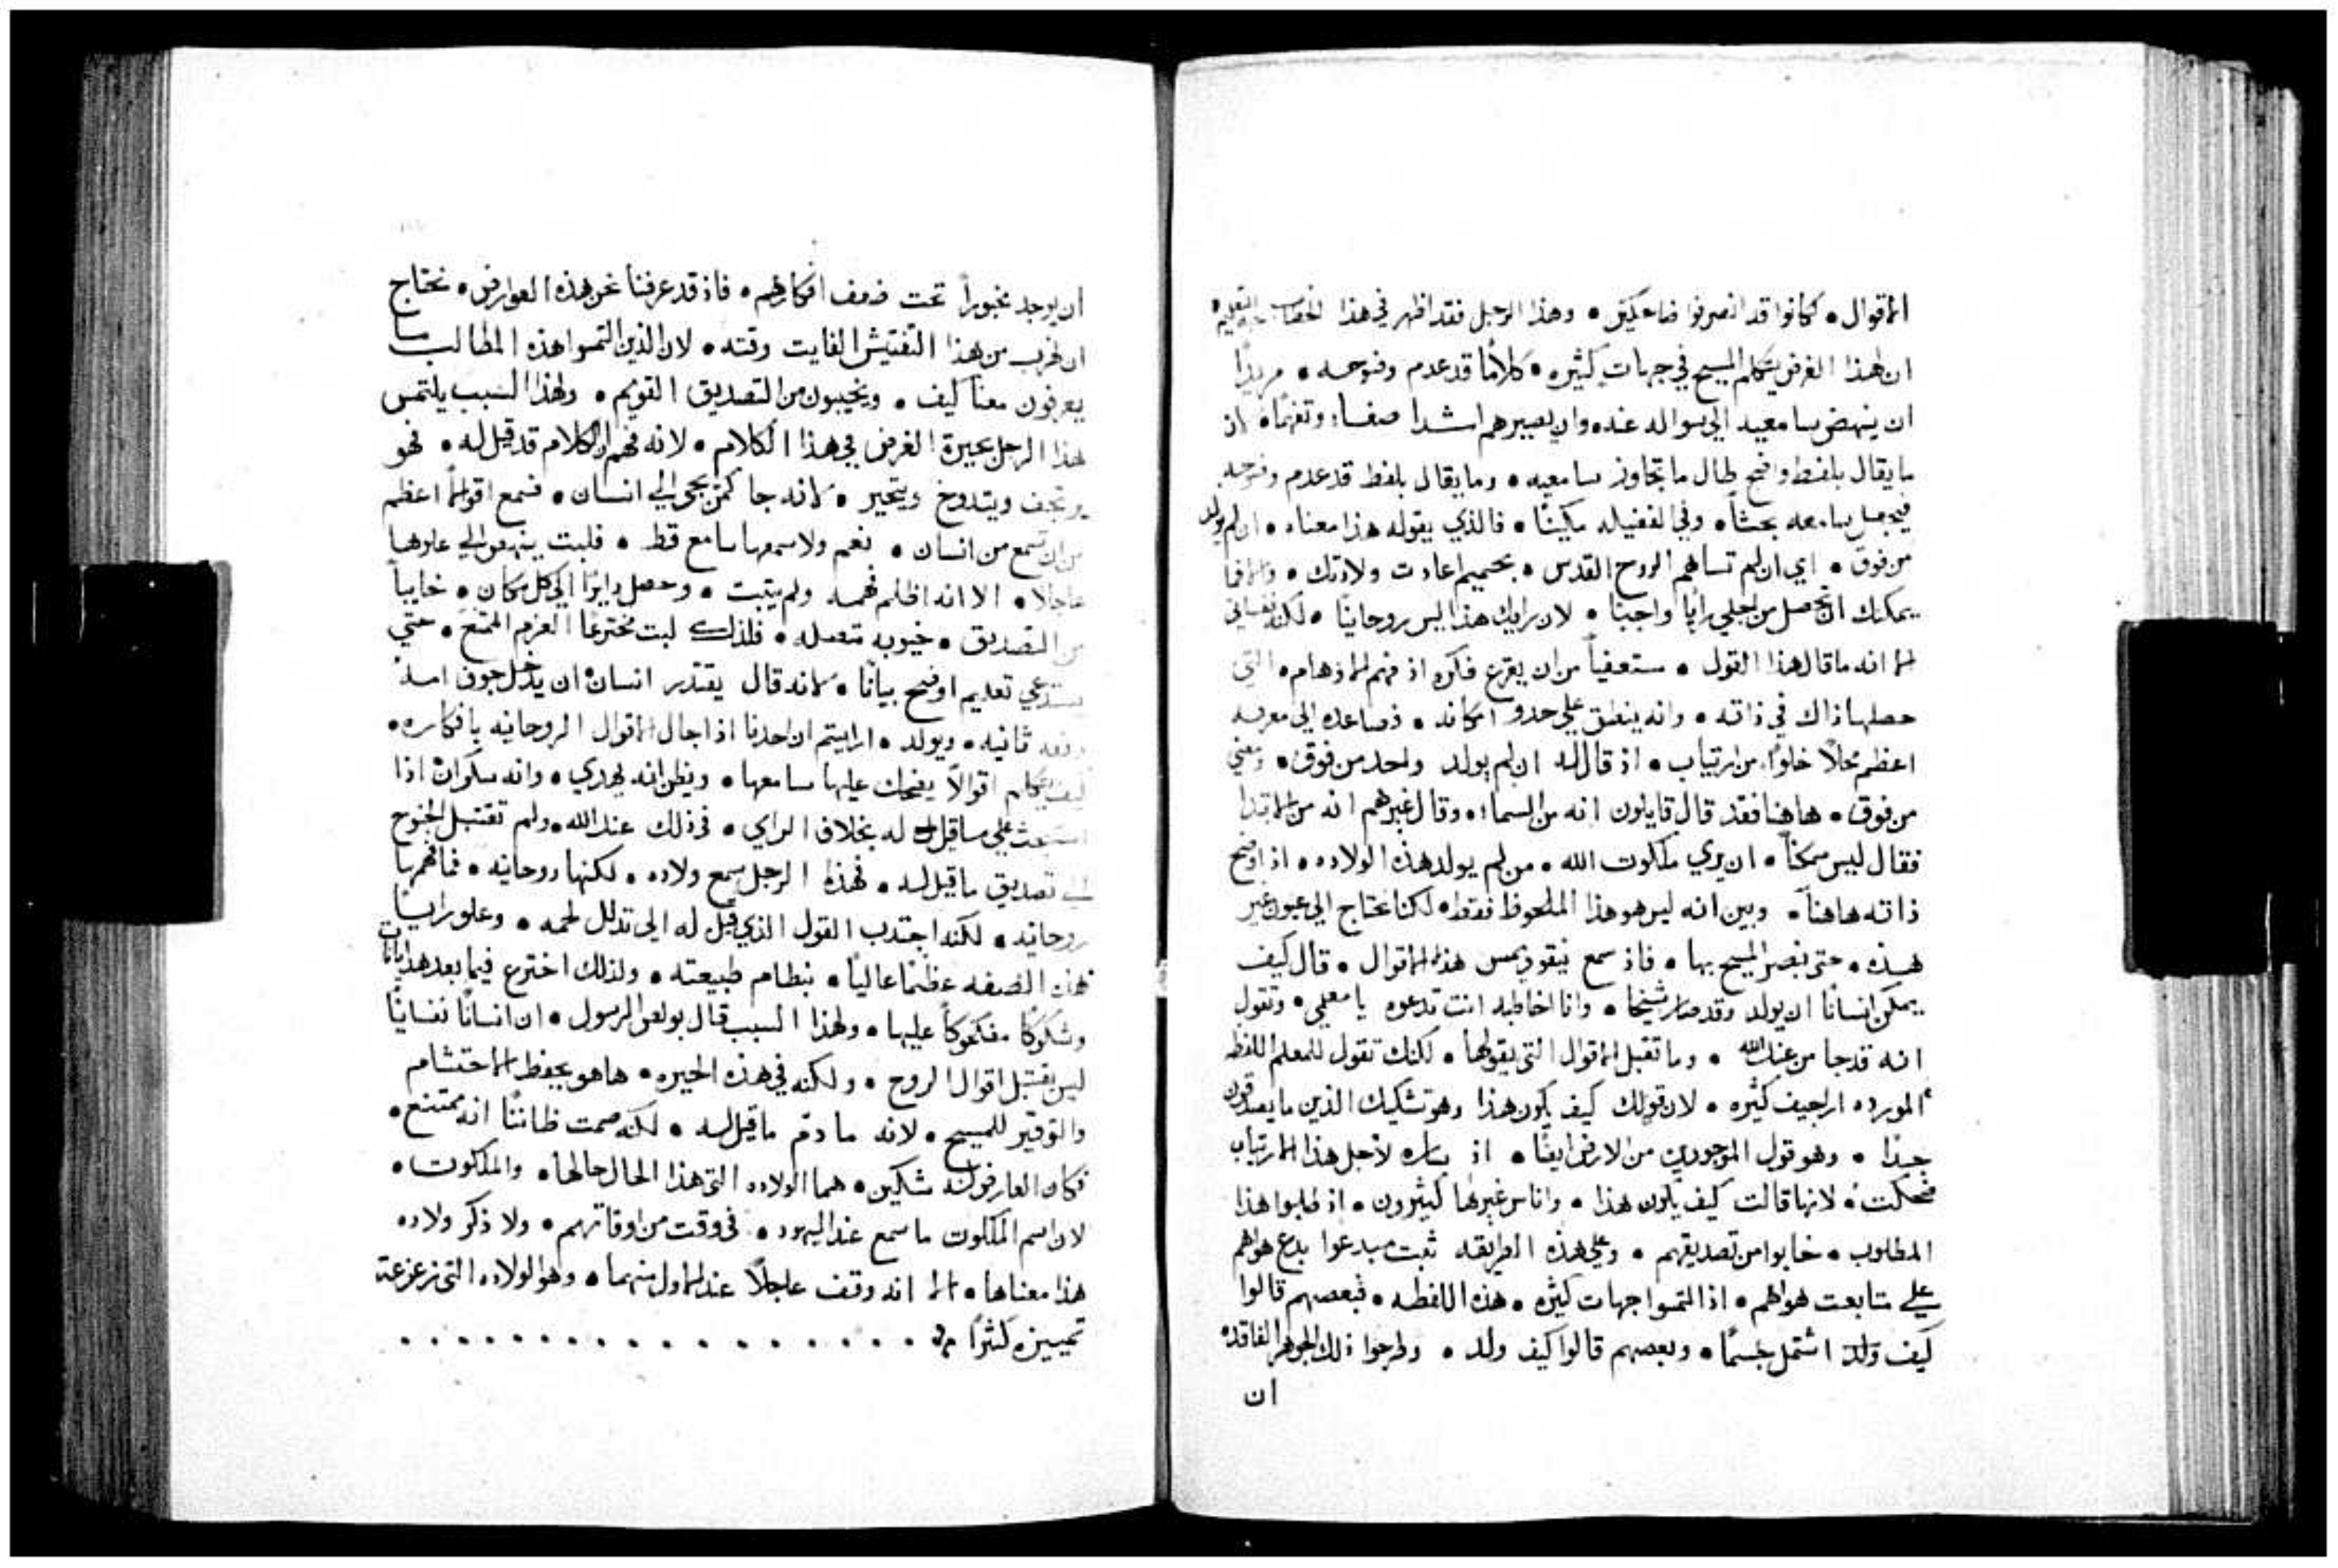 الاقوال • كانوا قد انصرفوا ضاحكين • وهذا الرجل فقد اظهر في هذا
ان لهذا الغرض يتكلم المسيح في جهات كثيره • كلاما قد عدم وضوحه • مريدا
ان ينهض سامعيه الي سواله عنده وان يصيرهم اشد اصغاء وتفهما • ان
ما يقال بلفظ واضح طال ما تجاوز سامعيه • وما يقال بلفظ قد عدم وضوحه
فيجعل سامعه بحثا • وفي مكينا • فالذي يقوله هذا معناه • ان لم يولد
من فوق • اي ان لم تساهم الروح القدس • بحميم اعادت ولادتك • والا فما
يمكنك ان تحصل من اجلي رايا واجبا • لان رايك هذا ليس روحانيا • لكنه نفساني
الا انه ما قال هذا القول • مستعفيا من ان يقرع فكره اذ فهم الاذهام • التي
حصلها ذاك في ذاته • وانه ينطق علي حدو امكانه • فصاعده الي معرفه
اعظم محلا خلوا من ارتياب • اذ قال له ان لم يولد واحد من فوق • ومعني
من فوق • هاهنا فقد قال قايلون انه من السماء • وقال غيرهم انه من الابتدا
فقال ليس ممكنا • ان يري ملكوت الله • من لم يولد هذه الولاده • اذ اوضح
ذاته هاهنا • وبين انه ليس هو هذا الملحوظ فقط • لكنا نحتاج الي عيون غير
هذه • حتى نبصر المسيح بها • فاذ سمع نيقوديمس هذه الاقوال • قال كيف
يمكن انسانا ان يولد وقد صار شيخا • وانا اخاطبه انت تدعوه يا معلمي • وتقول
انه قد جا من عند الله • وما تقبل الاقوال التي يقولها • لكنك تقول للمعلم اللفظه
المورده اراجيف كثيره • لان قولك كيف يكون هذا وهو تشكيك الذين ما يصدقون
جيدا • وهو قول الموجودين من الارض ايضا • اذ ساره لاجل هذا الارتياب
ضحكت • لانها قالت كيف يكون هذا • واناس غيرها كثيرون • اذ طلبوا هذا
المطلوب • خابوا من تصديقهم • وعلي هذه الطريقه ثبت مبدعوا بدع هواهم
علي متابعت هواهم • اذ التمسوا جهات كثيره • هذه اللفظه • فبعضهم قالوا
كيف ولد اشتمل جسما • وبعضهم قالوا كيف ولد • وطرحوا ذلك الجوهر الفاقده
ان
ان يوجد مخبورا تحت ضعف افكارهم • فاذ قد عرفنا نحن هذه العوارض • نحتاج
ان نهرب من هذا التفتيش الفايت وقته • لان الذين التمسوا هذه المطالب ما
يعرفون معنا كيف • ويخيبون من التصديق القويم • ولهذا السبب يلتمس
هذا الرجل بحيرة الغرض في هذا الكلام • لانه فهم ان الكلام قد قيل له • فهو
يرتجف ويتدوخ ويتحير • كانه جا كمن يجي الي انسان • فسمع اقوالا اعظم
من ان تسمع من انسان • نعم ولا سمعها سامع قط • فلبت ينهض الي علوها
عاجلا • الا انه اظلم فهمه ولم يتبت • وحصل دايرا الي كل مكان • خايبا
من التصديق • خيوبه متصله • فلذلك لبت مخترعا العزم الممتنع • حتي
يستدعي تعليم اوضح بيانا • كانه قال يقتدر انسان ان يدخل جوف امه
دفعه ثانيه • ويولد • ارايتم ان احدنا اذا اجال الاقوال الروحانيه بافكاره •
كيف يتكلم اقوالا يضحك عليها سامعها • ويظن انه يهدي • وانه سكران اذا
استبحث علي ما قيل له بخلاف الراي • في ذلك عند الله • ولم تقتبل الجنوح
الي تصديق ما قيل له • فهذا الرجل سمع ولاده • لكنها روحانيه • فما فهمها
روحانيه • لكنه اجتدب القول الذي قيل له الي تدلل لحمه • وعلو رايا
بهذه الصفه عظيما عاليا • بنظام طبيعته • ولذلك اخترع فيما بعد هديانات
وشكوكا مضحوكا عليها • ولهذا السبب قال بولص الرسول • ان انسانا نفسانيا
ليس يقتبل اقوال الروح • ولكنه في هذه الحيره • ها هو يحفظ الاحتشام
والتوقير للمسيح • لانه ما دم ما قيل له • لكنه صمت ظاننا انه ممتنع •
فكان العارضون له شكين • هما الولاده التي هذا الحال حالها • والملكوت •
لان اسم الملكوت ما سمع عند اليهود • في وقت من اوقاتهم • ولا ذكر ولاده
هذا معناها • الا انه وقف عاجلا عند الاول منهما • وهو الولاده التي زعزعة
تمييزه كثيرا